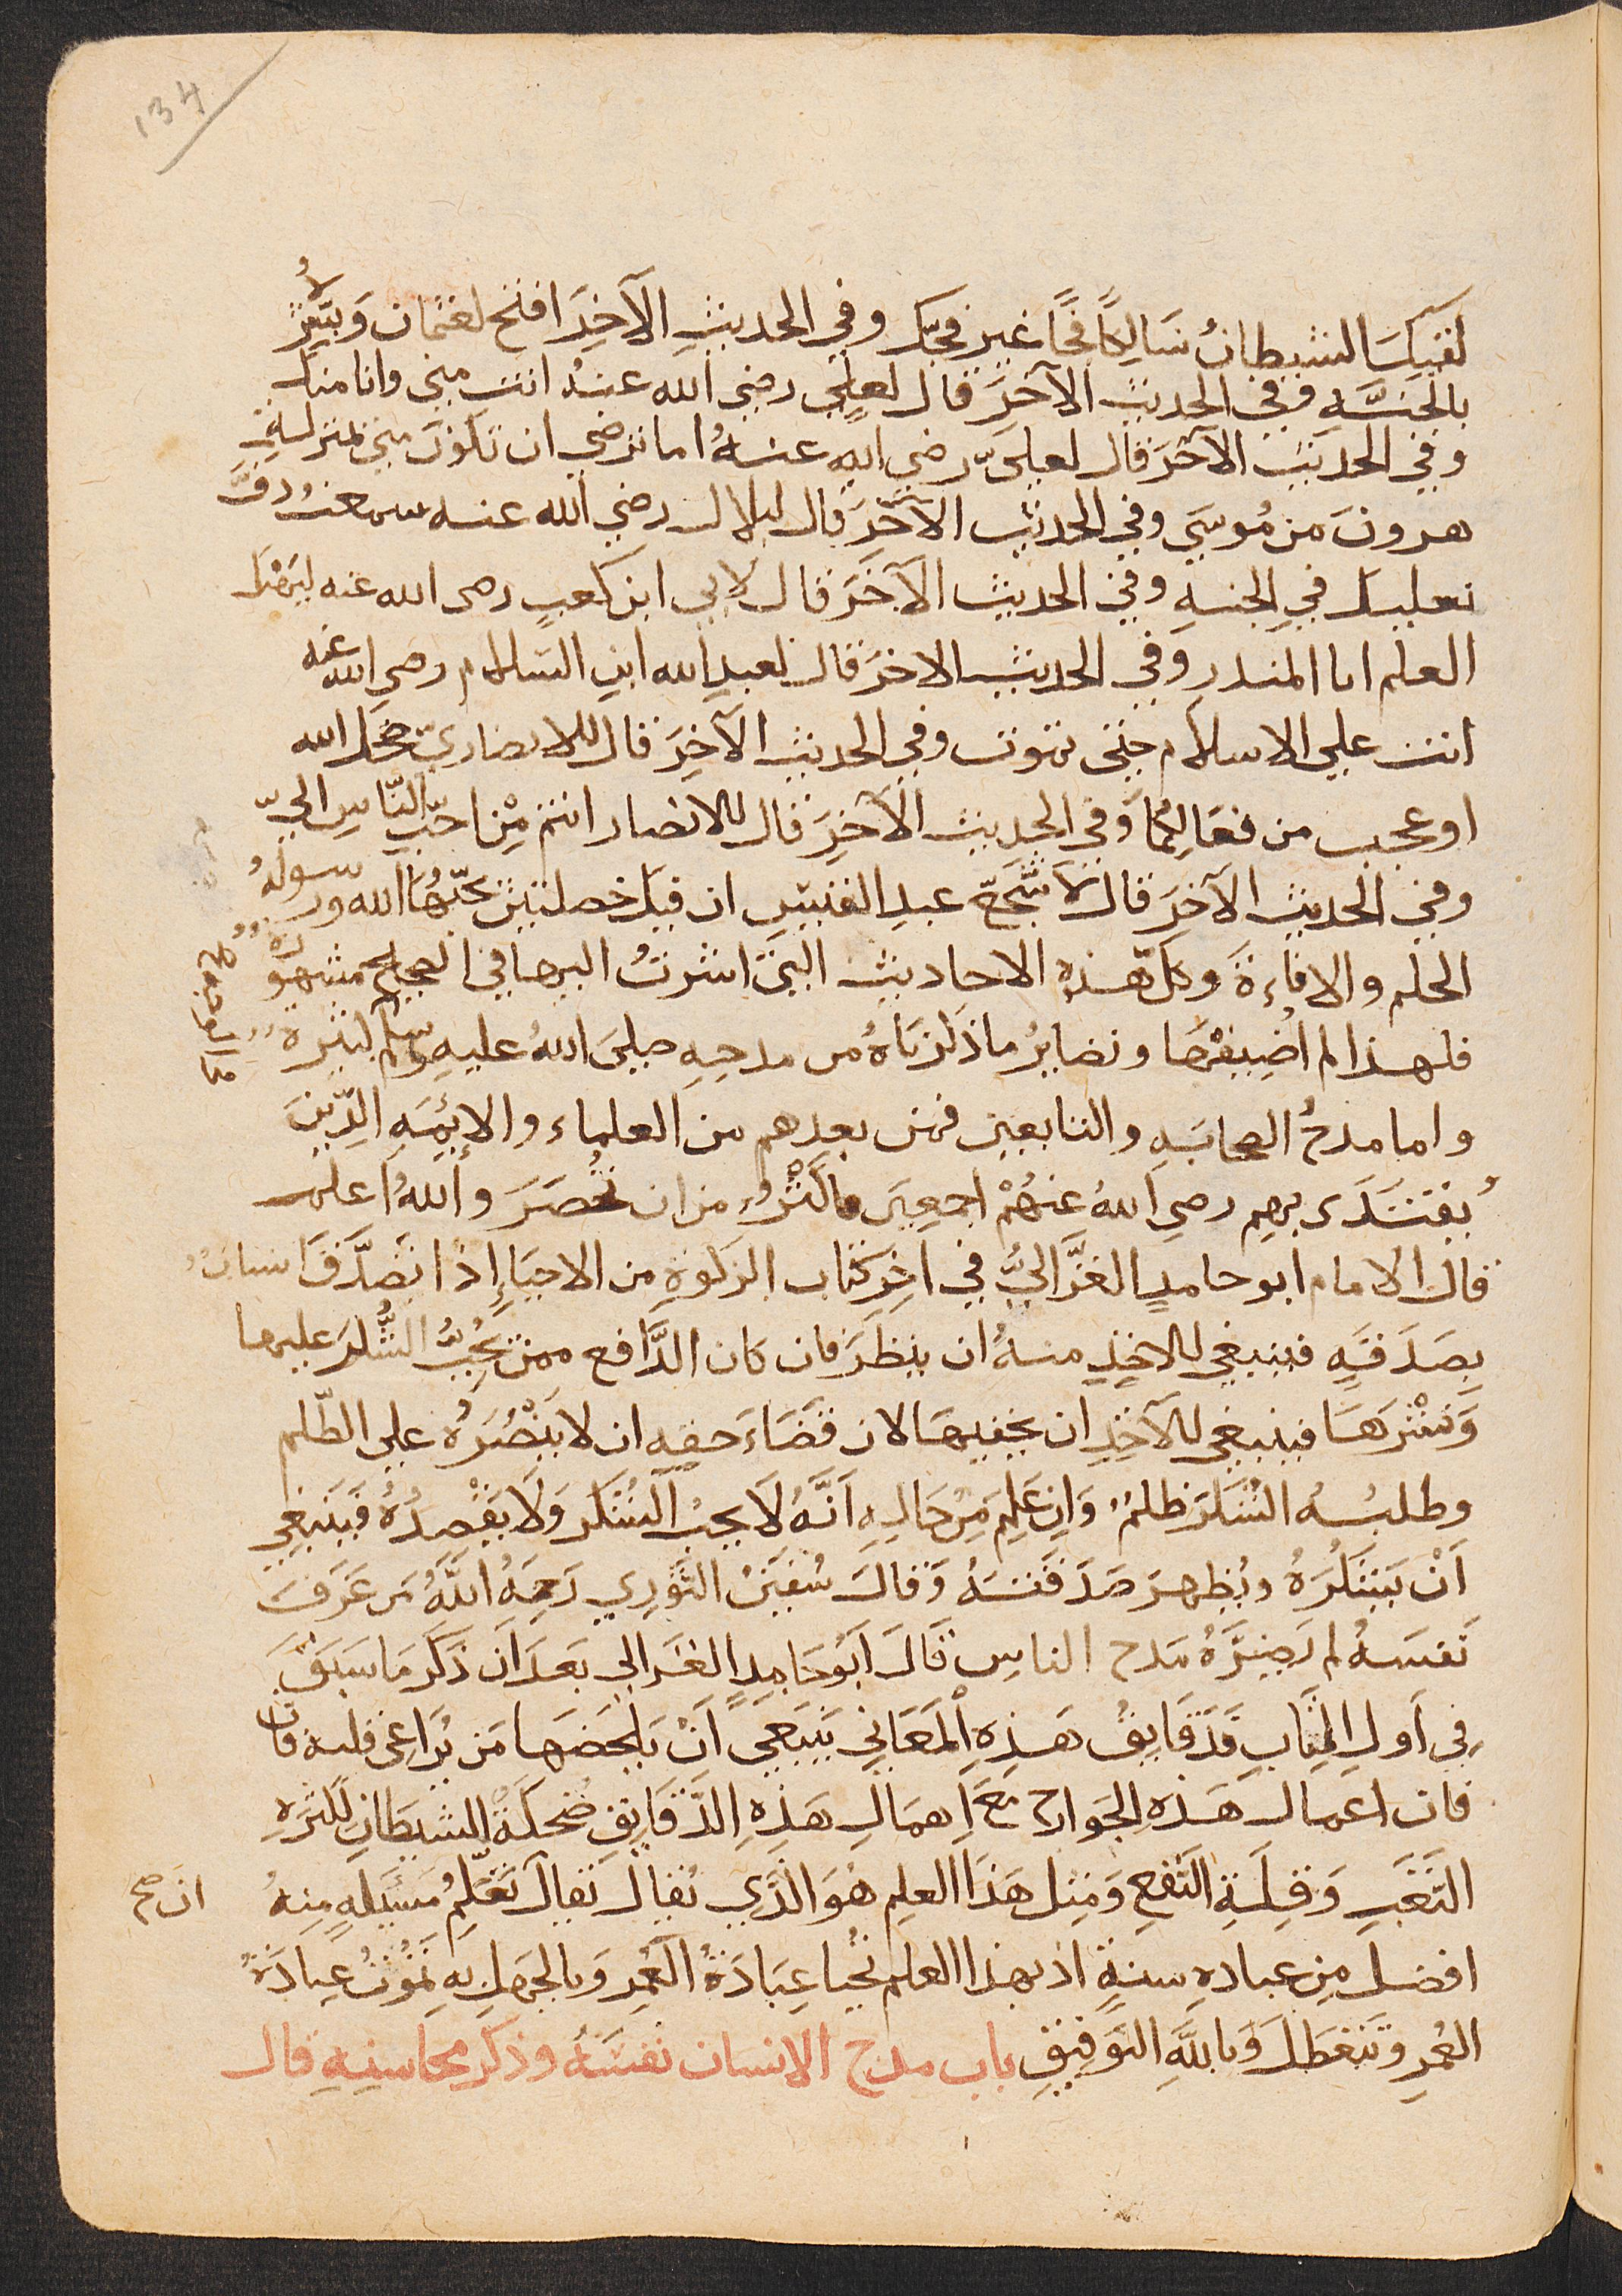 134
لقيك الشيطان سالكا فجا غير فجك وفي الحديث الآخر افتح لعثمان وبشره
بالجنة وفي الحديث الآخر قال لعلي رضي الله عنه انت مني وانا منك
وفي الحديث الآخر قال لعلي رضي الله عنه اما ترضي ان تكون مني بمنزلة
هرون من موسي وفي الحديث الآخر قال لبلال رضي الله عنه سمعت دف
نعليك في الجنة وفي الحديث الآخر قال لابي ابن كعب رضي الله عنه ليهنك
العلم ابا المنذر وفي الحديث الاخر قال لعبد الله ابن السلام رضي الله عنه
انت علي الاسلام حتي تموت وفي الحديث الآخر قال للانصاري ضحك الله
او عجب من فعالكما وفي الحديث الآخر قال للانصار انتم من احب الناس الي
وفي الحديث الآخر قال لاشج عبد القيس ان فيك خصلتين يحبهما الله ورسوله
الحلم والاناءة وكل هذه الاحاديث التي اشرت اليها في الصحيح مشهورة
فلهذا لم اضيفها ونضاير ما ذكرناه من مدحه صلي الله عليه وسلم كثيرة
واما مدح الصحابه والتابعين فمن بعدهم من العلماء والايمه الذين
يقتدى بهم رضي الله عنهم اجمعين فاكثر من ان تحصر والله اعلم
قال الامام ابو حامد الغزالي في اخر كتاب الزكوة من الاحياء إذا تصدق انسان
بصدقة فينبغي للاخذ منه ان ينظر فان كان الدافع ممن يحب الشكر عليها
ونشرها فينبغي للآخذ ان يخفيها لان قضاء حقه ان لا ينصره علي الظلم
وطلبه الشكر ظلم وان علم من حاله انه لا يحب الشكر ولا يقصده فينبغي
ان يشكره ويظهر صدقته وقال سفين الثوري رحمه الله من عرف
نفسه لم يضره مدح الناس قال ابو حامد الغزالي بعد ان ذكر ما سبق
في اول الكتاب فدقايق هذه المعاني ينبغي ان يلحضها من يراعى قلبه فان
فان اعمال هذه الجوارح مع اهمال هذه الدقايق ضحكة الشيطان لكثرة
التعب وقلة النفع ومثل هذا العلم هو الذي يقال يقال تعلم مسئلة منه ان صح
افضل من عباده سنة اذ بهذا العلم تحيا عبادة العمر وبالجهل به تموت عبادة
العمر وتتعطل وبالله التوفيق باب مدح الانسان نفسه وذكر محاسنه قال